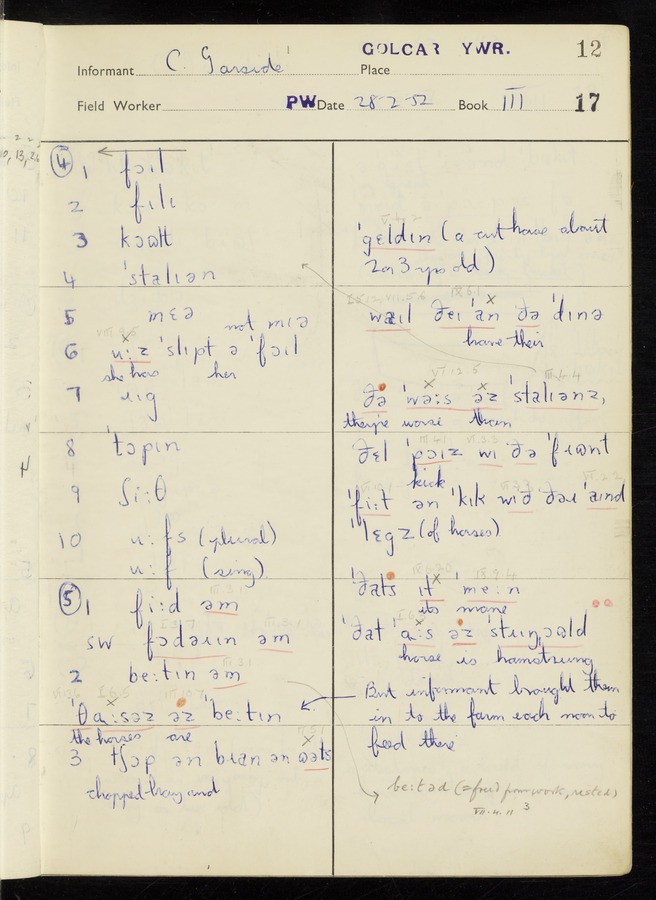 GOLCAR YWR. 12
Informant C. Garside Place
Field Worker PW Date 28 2 52 Book III 17
④ 1 fɔɪl
2 fɪlɪ
3 kɔʊlt
4 'stalɪən
5 mɛə
not mɪə
6 u:z 'slɪpt ə 'fɔɪl
she has her
7 ɹɪg
8 'tɔpɪn
9 ʃi:θ
10 u:fs (plural)
u:f (sing)
⑤ 1 fi:d əm
SW fɔdəɹɪn əm
2 be:tɪn əm
'θa:səz əz 'be:tɪn
the horses are
3 tʃɔp ən bɹan ən wəts
chopped-bran and
'gɛldɪn (a cut horse about
2 or 3 yrs old)
ðeɪ 'an ðə 'dɪnə
have their
ðə 'wə:s əz 'stalɪənz,
they're worse than
ðɛl 'pɔɪz wɪ ðə 'fɹʊnt
kick
'fi:t ən 'kɪk wɪð ðəɪ 'aɪnd
'lɛgz (of horses)
'ðats ɪt 'me:n
its mane
'ðat 'a:s əz 'stɹɪŋɔəld
horse is hamstrung
But informant brought them
in to the farm each noon to
feed there
be:təd (= freed from work, rested)
VII.4.11 3